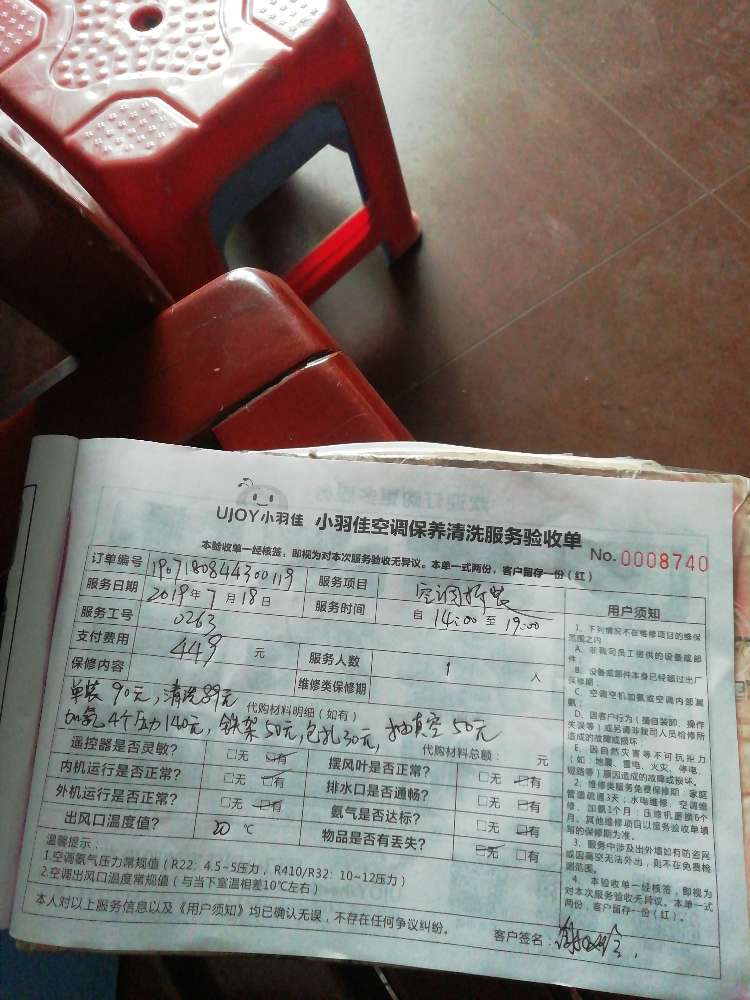 UJOY小羽佳 小羽佳空调保养清洗服务验收单
本验收单一经核签，即视为对本次服务验收无异议。本单一式两份，客户留存一份（红）
No. 0008740
订单编号 1907180844300119 服务项目 空调拆装
服务日期 2019年7月18日 服务时间 自 14:00 至 19:00
服务工号 0263
支付费用 449 元 服务人数 1 人
保修内容 维修类保修期
单装90元，清洗89元 代购材料明细（如有）
加氨4个压力140元，铁架50元，包孔30元，抽真空50元
代购材料总额： 元
遥控器是否灵敏？ □无 □有 摆风叶是否正常？ □无 □有
内机运行是否正常？ □无 □有 排水口是否通畅？ □无 □有
外机运行是否正常？ □无 □有 氨气是否达标？ □无 □有
出风口温度值？ 20 ℃ 物品是否有丢失？ □无 □有
温馨提示：
1.空调氨气压力常规值（R22：4.5~5压力，R410/R32：10~12压力）
2.空调出风口温度常规值（与当下室温相差10℃左右）
本人对以上服务信息以及《用户须知》均已确认无误，不存在任何争议纠纷。
客户签名：
用户须知
1、下列情况不在维修项目的维保
范围之内
A、非我司员工提供的设备或部
件；
B、设备或部件本身已经超过出厂
保修期；
C、空调空机加氨或空调内部漏
氨；
D、因客户行为（擅自装卸、操作
失误等）或另请非我司人员检修所
造成的故障或损坏；
E、因自然灾害等不可抗拒力
（如：地震、雷电、火灾、停电、
短路等）原因造成的故障或损坏。
2、维修类服务免费保修期：家庭
管道疏通3天；水电维修、空调维
修、加氨1个月；压缩机更换6个
月。其他维修项目以服务验收单填
写的保修期为准。
3、服务中涉及出外墙如有防盗网
或因高空无法外出，则不在免费检
测范围。
4、本验收单一经核签，即视为
对本次服务验收无异议。本单一式
两份，客户留存一份（红）。